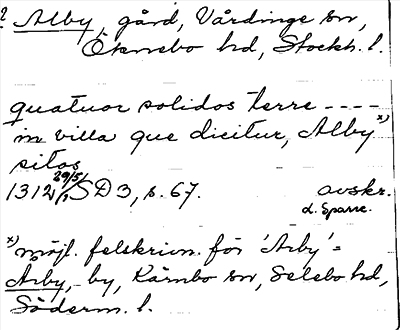 ? Alby, gård, Vårdinge sn,
Öknebo hd, Stockh. l.
quatuor solidos terre ----
in villa que dicitur, Alby x)
sitos
1312 29/5 SD 3, s. 67. avskr.
d. Sparre.
x) möjl. felskrivn. för 'Arby' =
Arby, by, Kärnbo sn, Selebo hd,
Söderm. l.